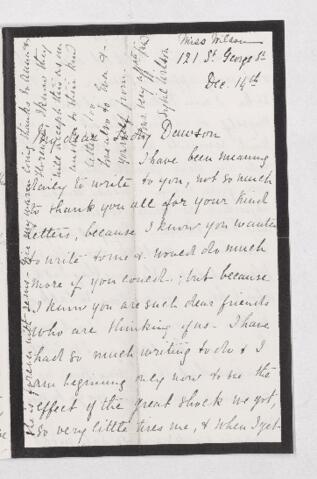 Miss Wilson
121 St. George St
Dec. 14th
My dear Lady Dawson
I have been meaning
daily to write to you, not so much
to thank you all for your kind
letters, because I know you wanted
to write to me & would do much
more if you could.; but because
I know you are such dear friends
who are thinking of us - I have
had so much writing to do & I
am beginning only now to see the
effect of the great shock we got,
so very little tires me, & when I get
my warm loving thanks to Anna &
Florence & I know they
will accept this as an
letter too
love also to
yourself from
yrs very aff
Sybil Wilson